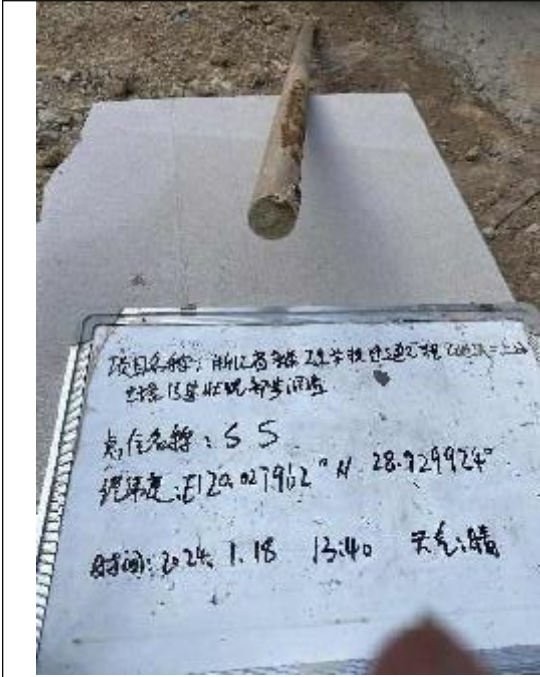 项目名称：浙江省
土壤污染状况初步调查
点位名称：S5
经纬度：E120.027962° N 28.929924°
时间：2024.1.18 13:40 天气：晴